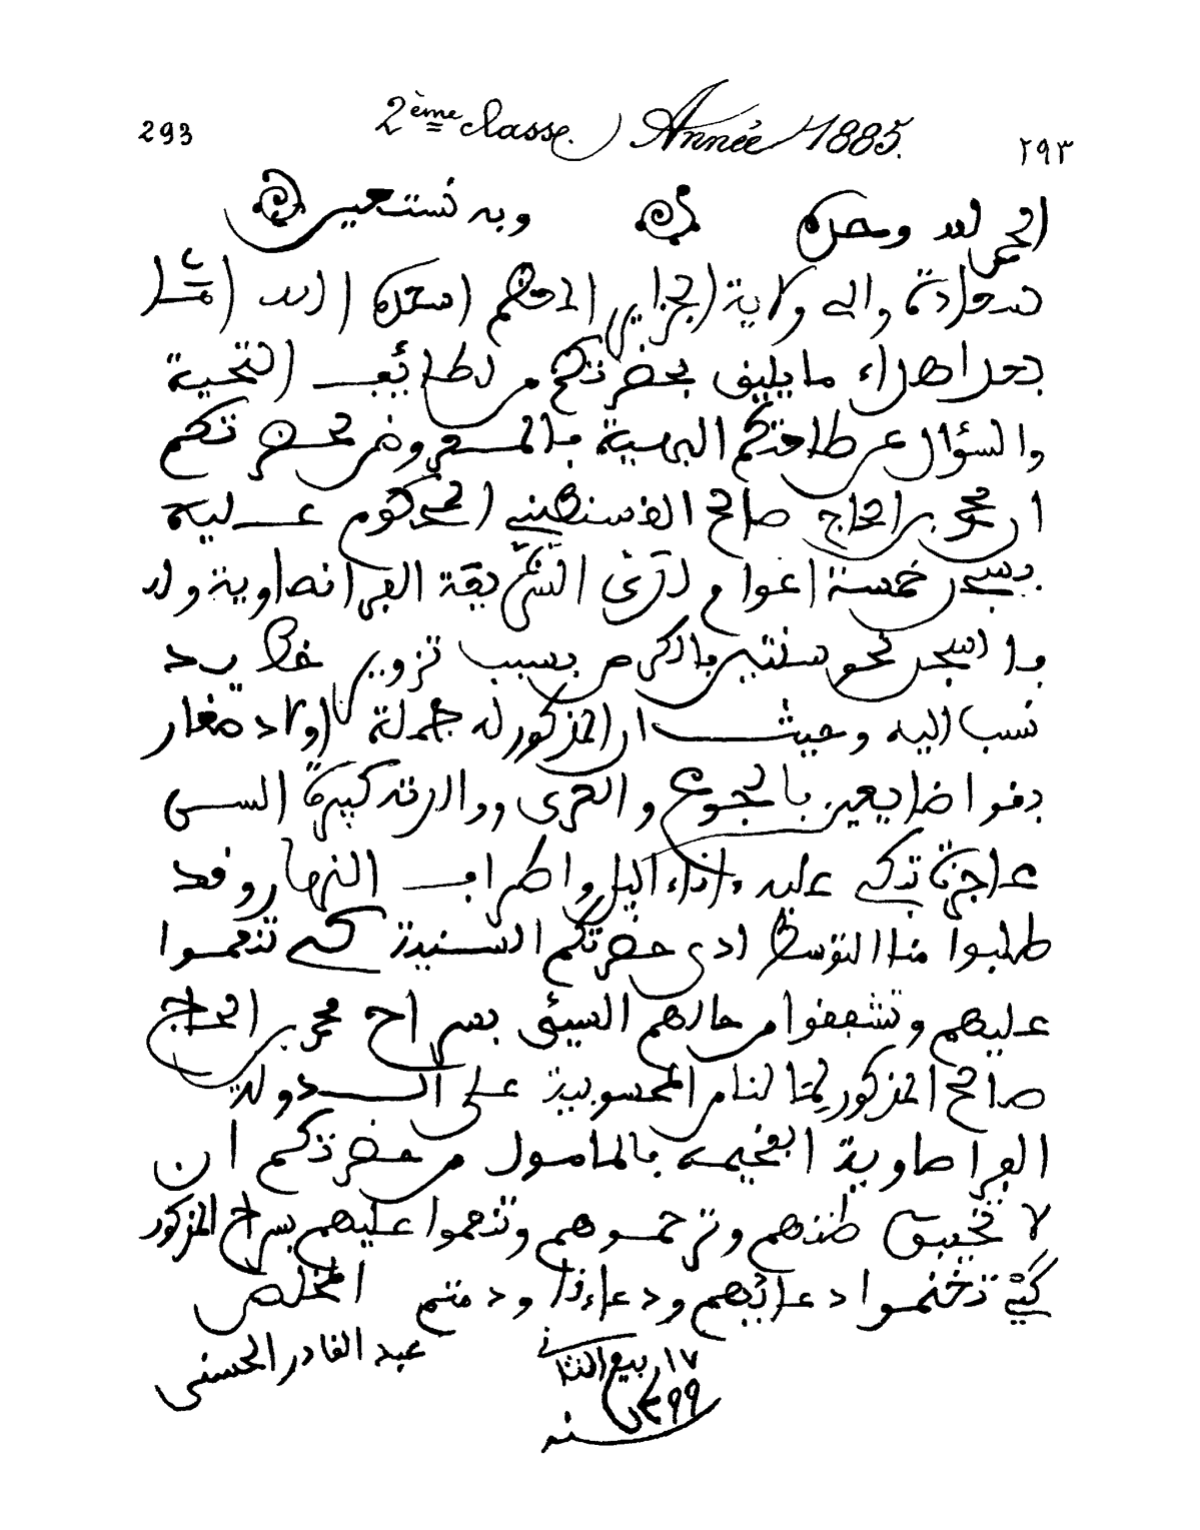 293 2ème classe. Année 1885. ٢٩٣
الحمد لله وحده وبه نستعين
سعادة والى ولاية الجزاير المعظم اسعده الله
بعد اهداء ما يليق بحضرتكم من لطائف التحية
والسؤال عن طلعتكم البهية فالمعروض لحضرتكم
ان محمد بن الحاج صالح القسنطيني المحكوم عليه
بسجن خمسة اعوام لدى الشريعة الفرانصاوية وله
في السجن نحو سنتين بالكرص بسبب تزوير خط يد
نسب اليه وحيث ان المذكور له جملة اولاد صغار
بقوا ضايعين بالجوع والعرى ووالدته كبيرة السن
عاجزة تبكي عليه ءاناء اليل واطراف النهار وقد
طلبوا منا التوسط لدى حضرتكم السنية كي تنعموا
عليهم وتشفقوا من حالهم السيئ بسراح محمد بن الحاج
صالح المذكور لما لنا من المحسوبية على الدولة
الفراصاوية الفخيمة فالمامول من حضرتكم ان
لا تخيبوا ظنهم وترحموهم وتنعموا عليهم بسراح المذكور
كي تغنموا دعائهم ودعاءنا ودمتم المخلص
عبد القادر الحسنى
١٧ ربيع الثاني
سنه